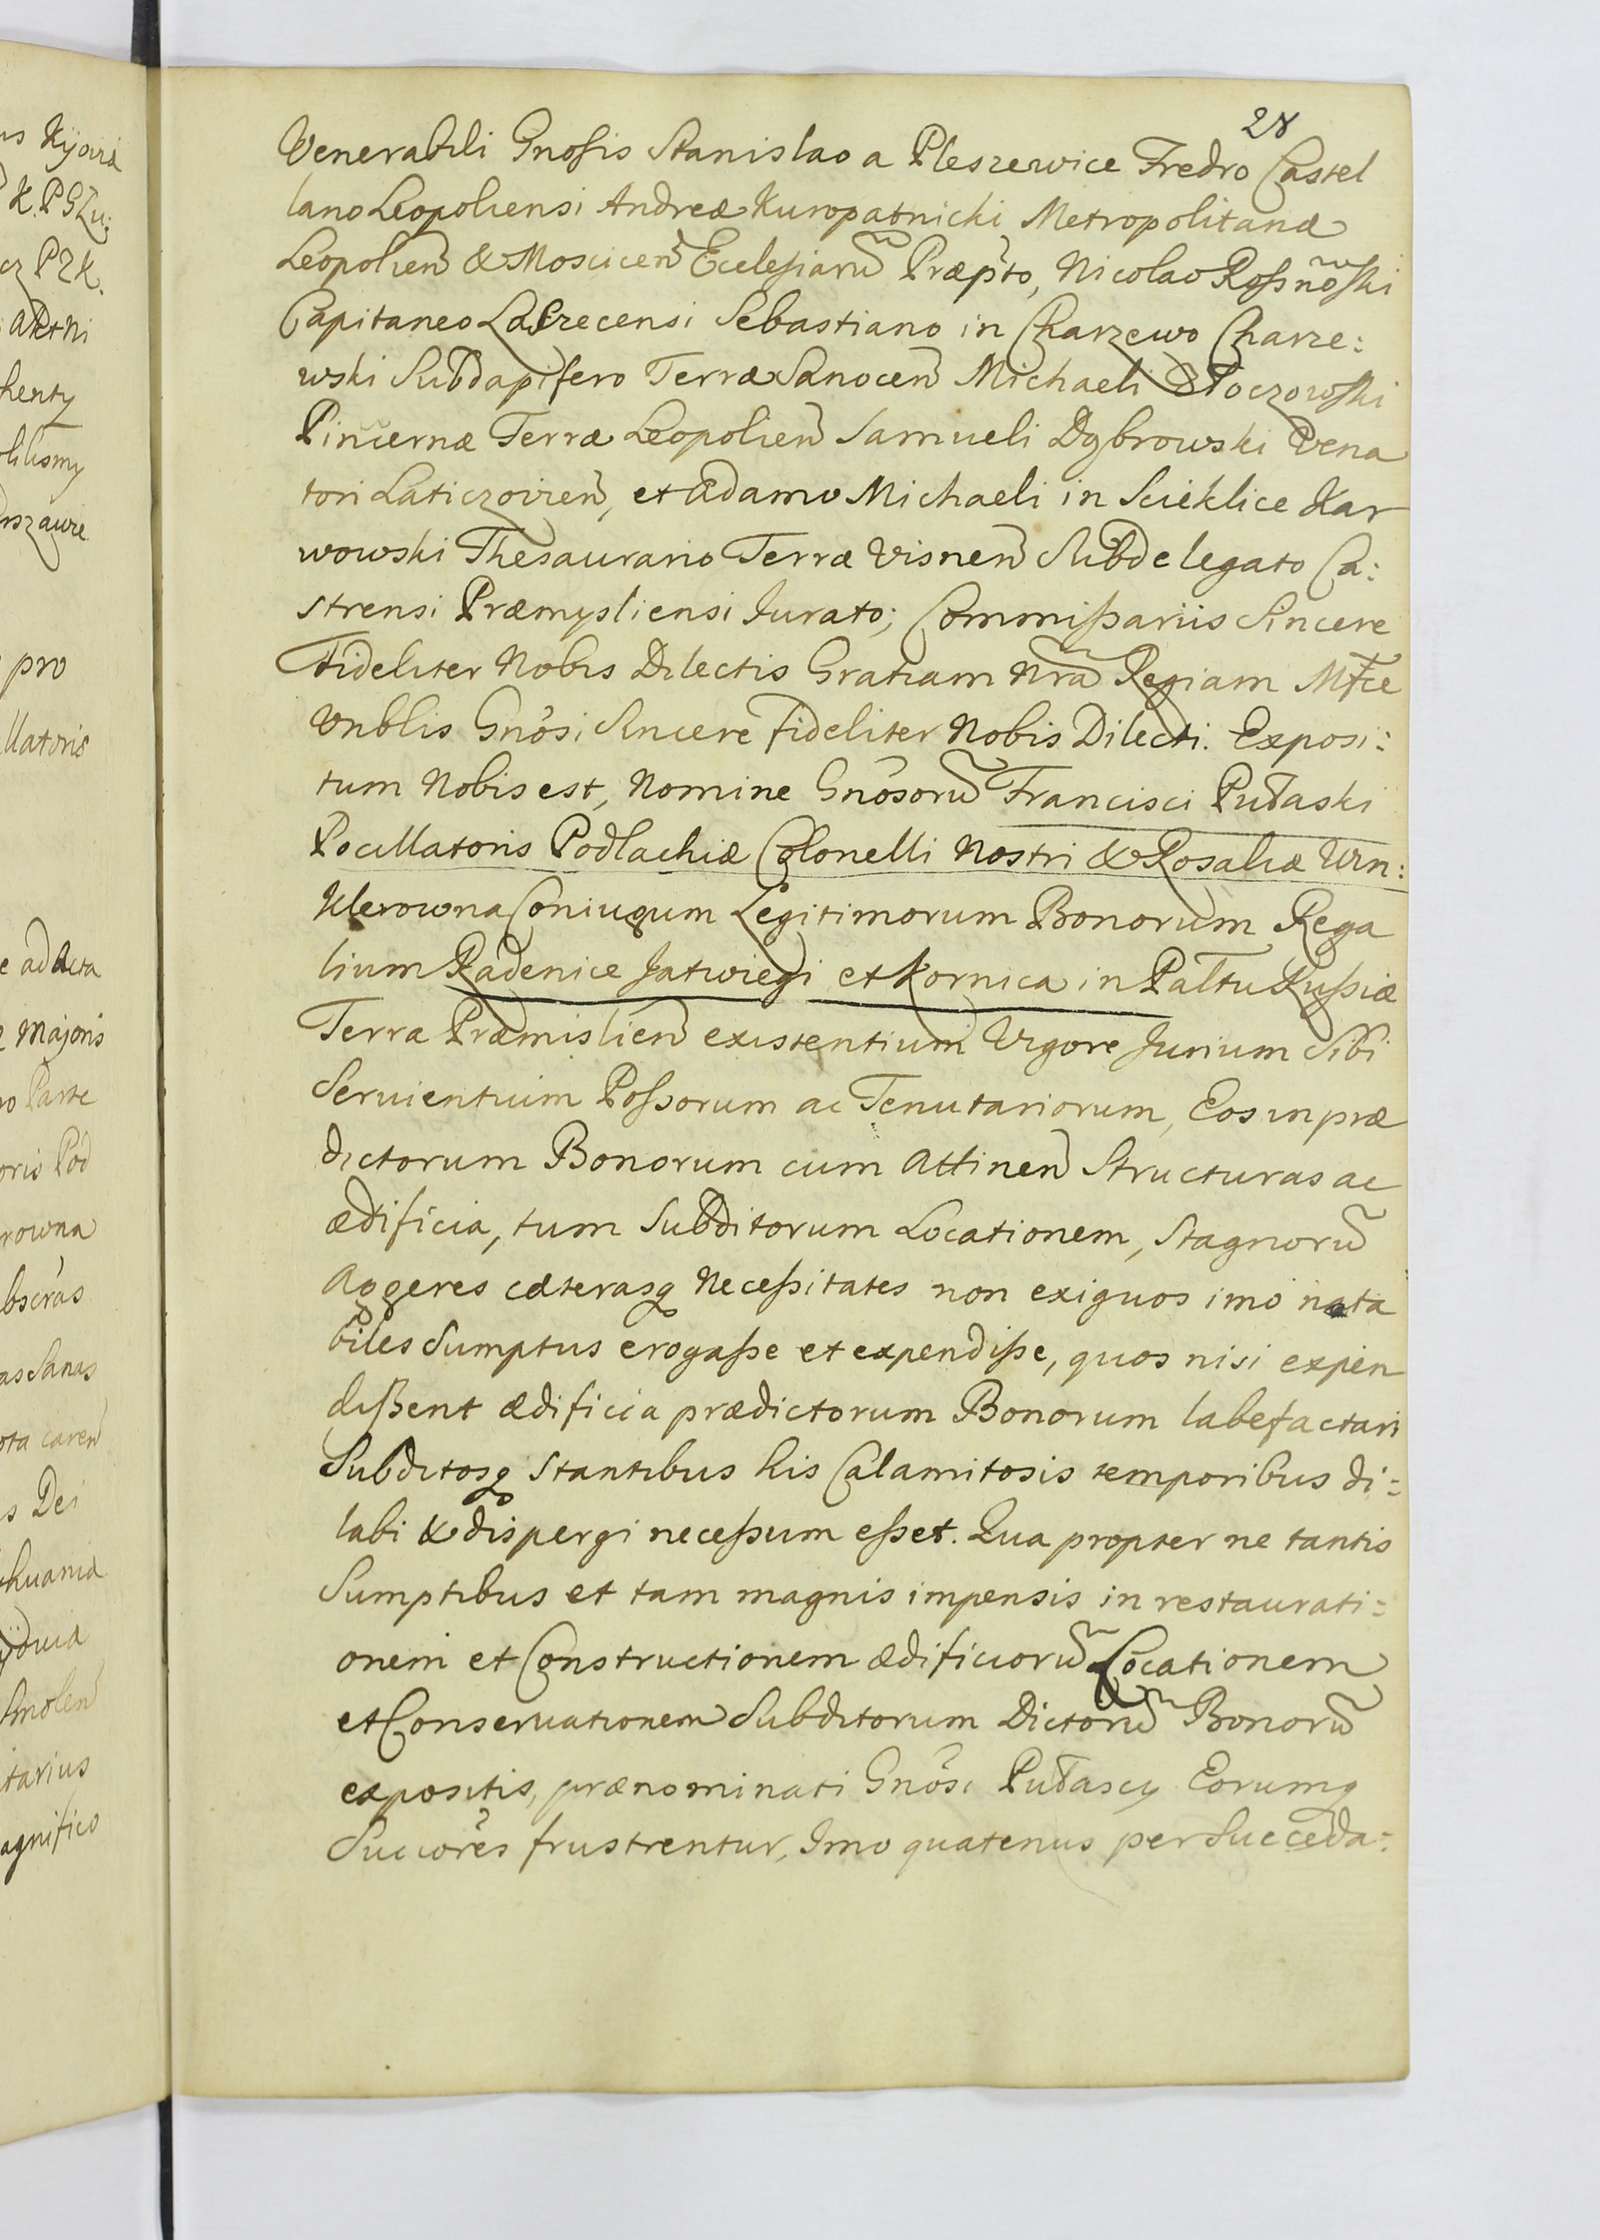 28
Venerabili Gnosis Stanislao a Pleszewice Fredro Castel
lano Leopoliensi Andreæ Kuropatnicki Metropolitanæ
Leopolien̄ & Moscicen̄ Ecclesiarū Præpto, Nicolao Rossnoski
Capitaneo Sebastiano in Charzewo Charze:
wski Subdapifero Terræ Sanocen̄ Michaeli
Pincernæ Terræ Leopolien̄ Samueli Dąbrowski Vena
tori Laticzovien̄, et Adamo Michaeli in Scieklice Kar
wowski Thesaurario Terræ Visnen̄ Subdelegato Ca:
strensi Præmysliensi Jurato; Commissariis Sincere
Fideliter Nobis Dilectis Gratiam Nrã Regiam Mfce
Vnblis Gnosi Sincere fideliter Nobis Dilecti. Exposi:
tum Nobis est, Nomine Gnosorū Francisci Pułaski
Pocillatoris Podlachiæ Colonelli Nostri & Rosaliæ Win:
klerowna Coniugum Legitimorum Bonorum Rega
lium Radenice Jatwiegi et Kornica in Paltu Russiæ
Terra Præmislien̄ existentium Vigore Jurium Sibi
Seruientium Possorum ac Tenutariorum, Eos in præ
dictorum Bonorum cum Attinen̄ Structuras ac
ædificia, tum Subditorum Locationem, Stagnorū
Aggeres cæterasq Necessitates non exiguos imo nota
biles Sumptus erogasse et expendisse, quos nisi expen
dissent ædificia prædictorum Bonorum labefactari
Subditosq stantibus his Calamitosis temporibus di:
labi & dispergi necessum esset. Qua propter ne tantis
Sumptibus et tam magnis impensis in restaurati:
onem et Constructionem ædificiorū Locationem
et Conseruationem Subditorum Dictorū Bonorū
expositis, prænominati Gnosi Pułascy Eorumq
Succores frustrentur, Imo quatenus per Succeda: